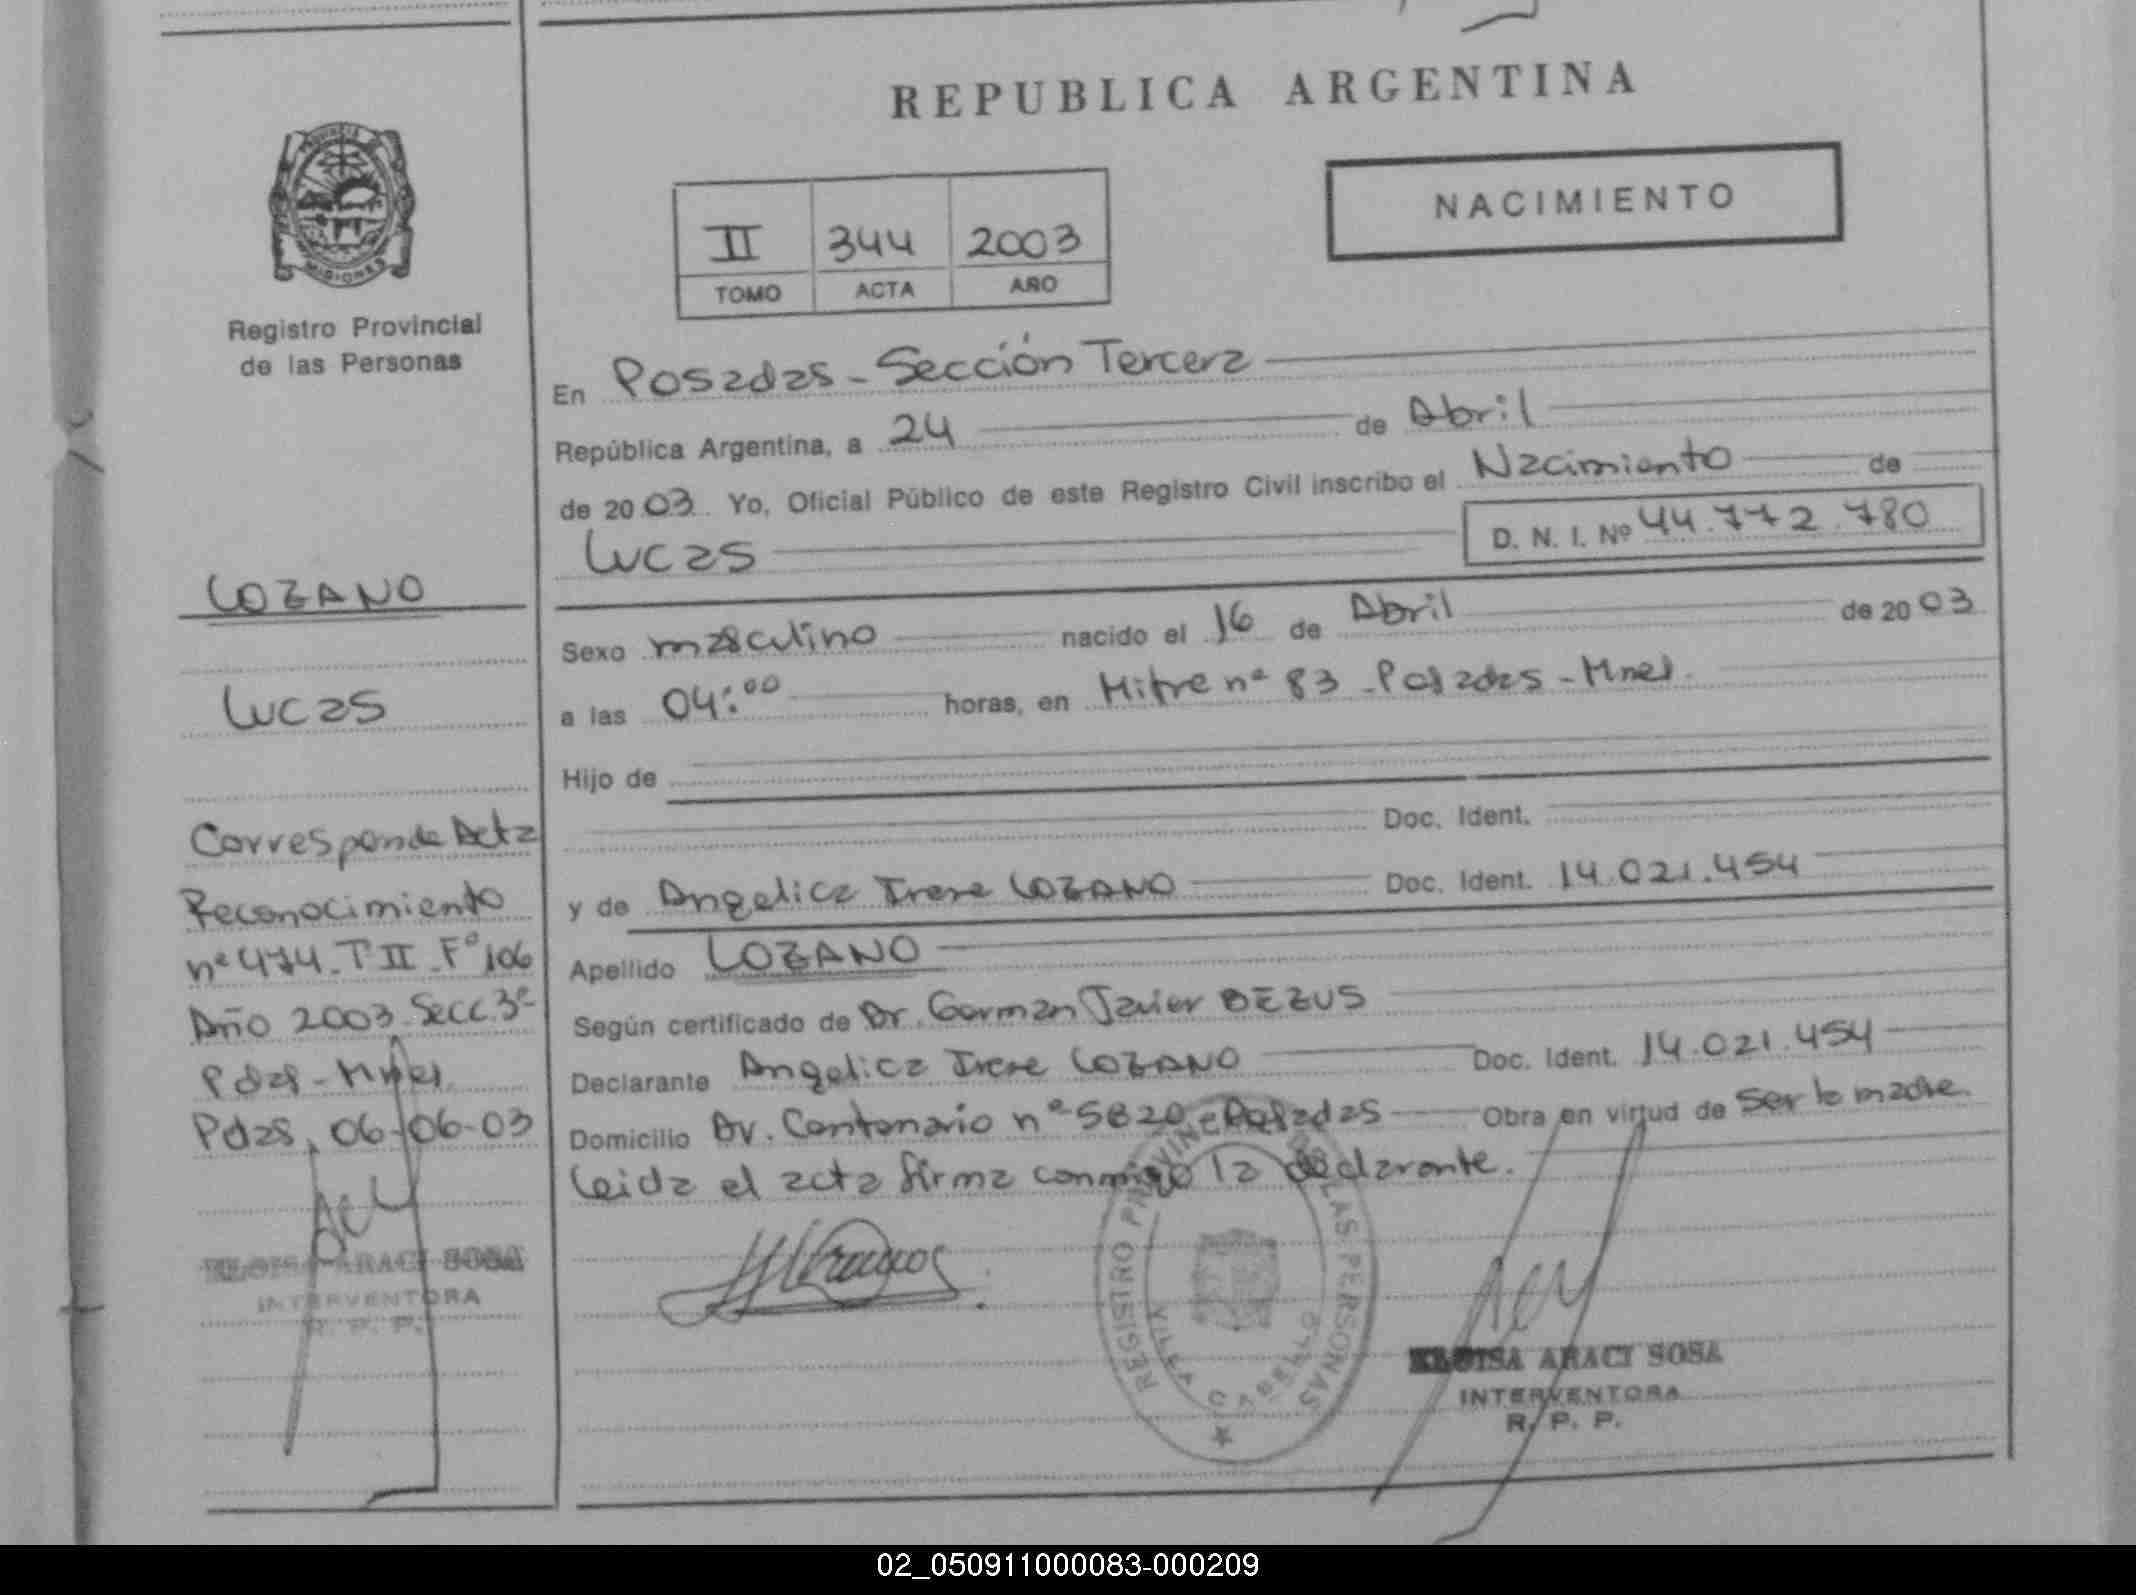 REPUBLICA ARGENTINA
NACIMIENTO
II 344 2003
TOMO ACTA AÑO
PROVINCIA
MISIONES
Registro Provincial
de las Personas
LOZANO
Lucas
Corresponde Acta
Reconocimiento
nº 474 T II Fº 106
Año 2003 Secc. 3ª
Pdas - Mnes.
Pdas, 06-06-03
ELOISA ARACI SOSA
INTERVENTORA
R. P. P.
En Posadas - Sección Tercera
República Argentina, a 24 de Abril
de 2003 Yo, Oficial Público de este Registro Civil inscribo el Nacimiento de
Lucas D. N. I. Nº 44.772.780
Sexo masculino nacido el 16 de Abril de 2003
a las 04:00 horas, en Mitre nº 83 - Posadas - Mnes.
Hijo de
Doc. Ident.
y de Angelica Irene LOZANO Doc. Ident. 14.021.454
Apellido LOZANO
Según certificado de Dr. German Javier BEZUS
Declarante Angelica Irene LOZANO Doc. Ident. 14.021.454
Domicilio Av. Centenario nº 5820 - Posadas Obra en virtud de ser la madre.
Leida el acta firma conmigo la declarante.
REGISTRO PROVINCIAL DE LAS PERSONAS
VILLA CABELLO
ELOISA ARACI SOSA
INTERVENTORA
R. P. P.
02_050911000083-000209